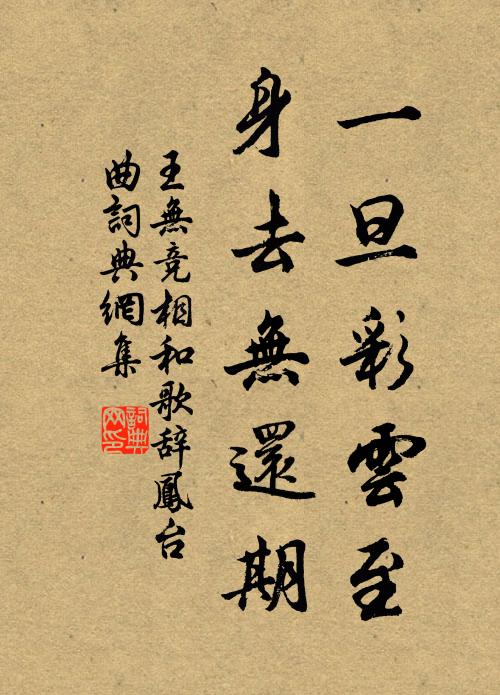 一旦彩雲至
身去無還期
王無競相和歌辞鳳台
曲詞典網集
詞典网印